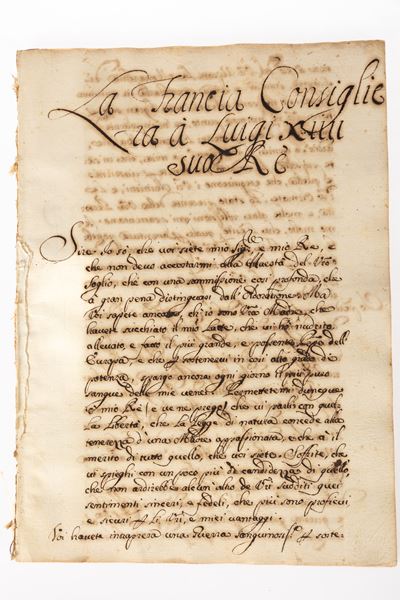 La Francia Consiglie
ra à Luigi XIIII
suo Rè
Sire Io sò che voi siete mio Sig.re e mio Rè, e
che non devo accostarmi alla Maestà del Vro
Soglio, che con una sommissione così profonda, che
à gran pena distinguasi dall'Adoratione. Mà
Voi sapete ancora, ch'io sono Vra Madre, che
havete succhiato il mio Latte, che vi hò nudrito
allevato, e fatto il più grande, e possente Rè dell'
Europa, e che p sostenervi in così alto grado di
potenza spargo ancora ogni giorno il più puro
sangue delle mie vene. Permettetemi dunque
ò mio Rè, e ve ne prego, che vi parli con quel
La Libertà, che La Legge di natura concede alla
tenerezza d'una Madre appassionata, e che è il
merito di tutto quello, che voi siete. Soffrite, che
vi spieghi con un poco più di candidezza di quello
che non ardirebbe alcun altro de Vri sudditi quei
sentimenti sinceri, e fedeli, che più sono proficui
e sicuri p Li Vri, e miei vantaggi.
Voi havete intrapresa una Guerra sanguinosis.a p soste-